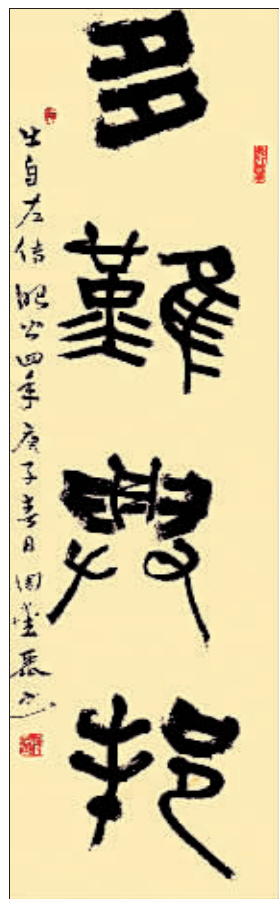 多難興邦
出自左传昭公四年庚子春日